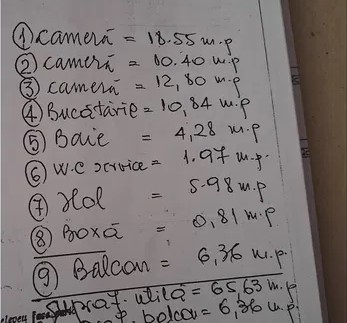 ① cameră = 18.55 m.p
② cameră = 10.40 m.p
③ cameră = 12,80 m.p
④ Bucătărie = 10,84 m.p
⑤ Baie = 4,28 m.p
⑥ W.C service = 1.97 m.p.
⑦ Hol = 5.98 m.p
⑧ Boxă = 0,81 m.p
⑨ Balcon = 6,36 m.p.
Supraf. utilă = 65,63 m.p
balcon = 6,36 m.p.